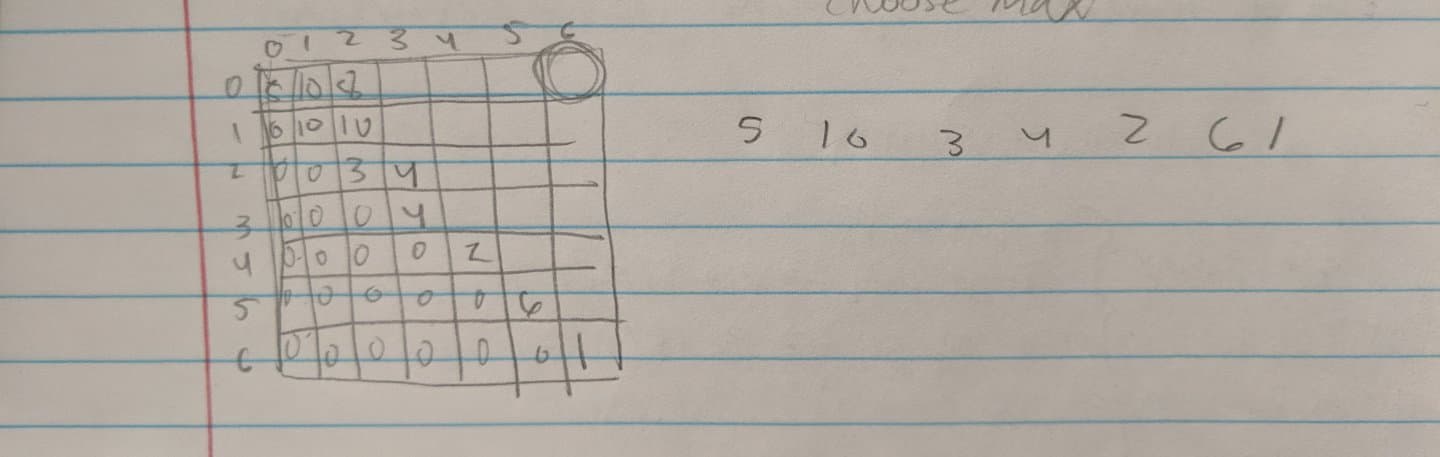 choose Max
0 1 2 3 4 5 6
0 5 10 8
1 0 10 10
2 0 0 3 4
3 0 0 0 4
4 0 0 0 0 2
5 0 0 0 0 0 6
6 0 0 0 0 0 0 1
5 10 3 4 2 6 1